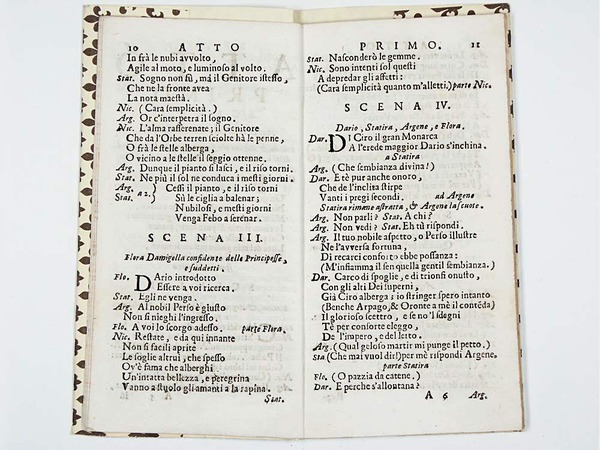 10 ATTO
In frà le nubi avvolto,
Agile al moto, e luminoso al volto.
Stat. Sogno non sù, má il Genitore istesso,
Che ne la fronte avea
La nota maestà.
Nic. (Cara semplicità.)
Arg. Or c'interpetra il sogno.
Nic. L'alma rasserenate; il Genitore
Che da l'Orbe terren sciolte hà le penne,
O frà le stelle alberga,
O vicino a le stelle il seggio ottenne.
Arg. Dunque il pianto si lasci, e il riso torni.
Stat. Ne più il sol ne conduca i mesti giorni.
Arg. Cessi il pianto, e il riso torni
Stat. a 2. Sù le ciglia a balenar;
Nubilosi, e mesti giorni
Venga Febo a serenar.
SCENA III.
Flora Damigella confidente delle Principesse,
e suddetti.
Flo. Dario introdotto
Essere a voi ricerca.
Stat. Egli ne venga.
Arg. Al nobil Perso è giusto
Non si nieghi l'ingresso.
Flo. A voi lo scorgo adesso. parte Flora.
Nic. Restate, e da qui innante
Non sì facili aprite
Le soglie altrui, che spesso
Ov'è fama che alberghi
Un'intatta bellezza, e peregrina
Vanno a stuolo gli amanti a la rapina.
Stat.
PRIMO. 11
Stat. Nasconderò le gemme.
Nic. Sono intenti sol questi
A depredar gli affetti:
(Cara semplicità quanto m'alletti.) parte Nic.
SCENA IV.
Dario, Statira, Argene, e Flora.
Dar. Di Ciro il gran Monarca
A l'erede maggior Dario s'inchina.
a Statira
Arg. (Che sembianza divina!)
Dar. E tè pur anche onoro,
Che de l'inclita stirpe
Vanti i pregi secondi. ad Argene
Statira rimane astratta, & Argene la scuote.
Arg. Non parli? Stat. A chi?
Arg. Non vedi? Stat. Eh tù rispondi.
Arg. Il tuo nobile aspetto, o Perso illustre
Ne l'avversa fortuna,
Di recarci conforto ebbe possanza:
(M'infiamma il sen quella gentil sembianza.)
Dar. Carco di spoglie, e di trionfi onusto,
Con gli altri Dei superni,
Già Ciro alberga: io stringer spero intanto
(Benche Arpago, & Oronte a mè il contēda)
Il glorioso scettro, e se no'l sdegni
Tè per consorte eleggo,
De l'impero, e del letto.
Arg. (Qual geloso martir mi punge il petto.)
Sta (Che mai vuol dir!) per mè rispondi Argene.
parte Statira
Flo. (O pazzia da catene.)
Dar. E perche s'allontana?
A 6 Arg.